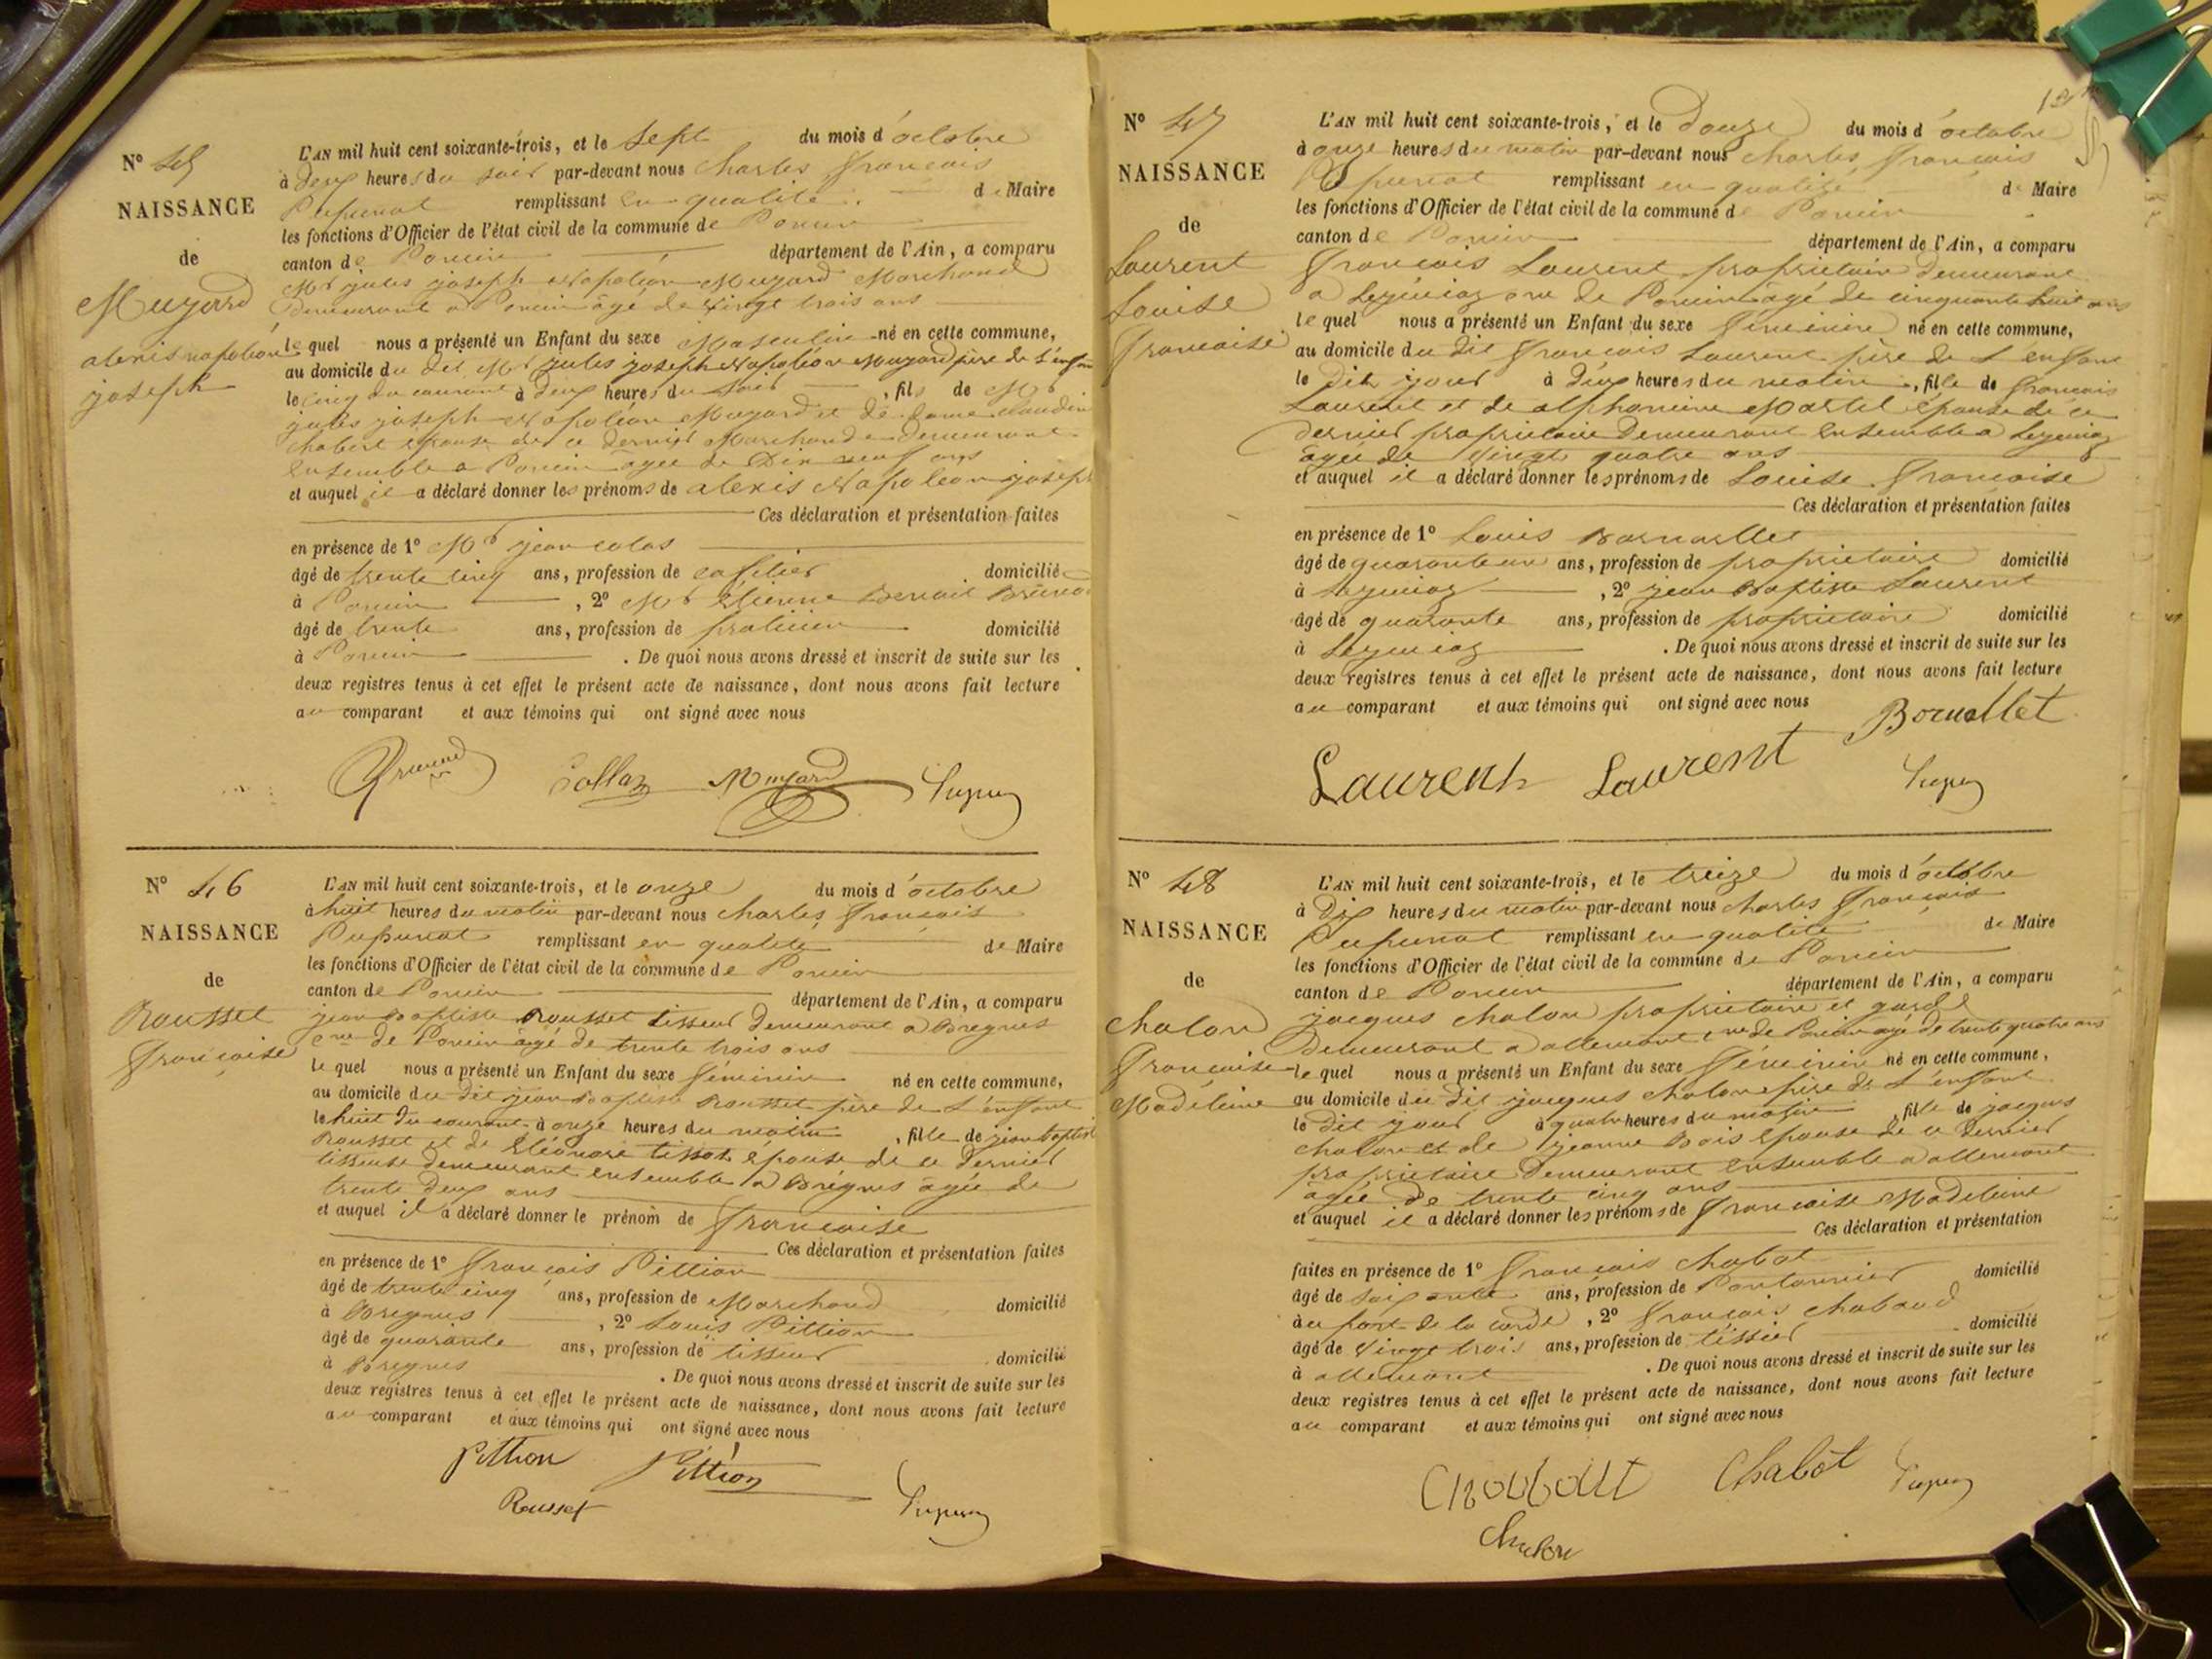 N° 45
NAISSANCE
de
Mugard
alexis napoléon
joseph
L'AN mil huit cent soixante-trois, et le sept du mois d'octobre
à deux heures du soir par-devant nous Charles françois
Pupunat remplissant en qualité de Maire
les fonctions d'Officier de l'état civil de la commune de Poncin
canton de Poncin département de l'Ain, a comparu
Mr jules joseph Napoléon Mugard Marchand
demeurant a Poncin âgé de vingt trois ans
lequel nous a présenté un Enfant du sexe Masculin né en cette commune,
au domicile du dit Mr jules joseph Napoléon Mugard père de l'enfant
le cinq du courant à deux heures du soir, fils de Mr
jules joseph Napoléon Mugard et de dame claudine
chabert épouse de ce dernier Marchande demeurant
ensemble a Poncin âgée de Dix neuf ans
et auquel il a déclaré donner les prénoms de alexis Napoléon joseph
Ces déclaration et présentation faites
en présence de 1° Mr jean colas
âgé de trente cinq ans, profession de cafetier domicilié
à Poncin, 2° Mr Etienne Benoit
âgé de trente ans, profession de praticien domicilié
à Poncin. De quoi nous avons dressé et inscrit de suite sur les
deux registres tenus à cet effet le présent acte de naissance, dont nous avons fait lecture
au comparant et aux témoins qui ont signé avec nous
Mugard
N° 46
NAISSANCE
de
Rousset
Françoise
L'AN mil huit cent soixante-trois, et le onze du mois d'octobre
à huit heures du matin par-devant nous Charles françois
Pupunat remplissant en qualité de Maire
les fonctions d'Officier de l'état civil de la commune de Poncin
canton de Poncin département de l'Ain, a comparu
jean Baptiste Rousset tisseur demeurant a Bregnes
cne de Poncin âgé de trente trois ans
lequel nous a présenté un Enfant du sexe féminin né en cette commune,
au domicile du dit jean Baptiste Rousset père de l'enfant
le huit du courant à onze heures du matin, fille de jean baptiste
Rousset et de Eléonore tissot épouse de ce dernier
tisseuse demeurant ensemble a Brégnes âgée de
trente deux ans
et auquel il a déclaré donner le prénom de françoise
Ces déclaration et présentation faites
en présence de 1° François Pittion
âgé de trente cinq ans, profession de Marchand domicilié
à Bregnes, 2° Louis Pittion
âgé de quarante ans, profession de tisseur domicilié
à Bregnes. De quoi nous avons dressé et inscrit de suite sur les
deux registres tenus à cet effet le présent acte de naissance, dont nous avons fait lecture
au comparant et aux témoins qui ont signé avec nous
Pittion Pittion
Rousset
N° 47
NAISSANCE
de
Laurent
Louise
Françoise
L'AN mil huit cent soixante-trois, et le Douze du mois d'octobre
à onze heures du matin par-devant nous Charles François
Pupunat remplissant en qualité de Maire
les fonctions d'Officier de l'état civil de la commune de Poncin
canton de Poncin département de l'Ain, a comparu
François Laurent propriétaire demeurant
a Leymiaz cne de Poncin âgé de cinquante huit ans
lequel nous a présenté un Enfant du sexe féminin né en cette commune,
au domicile du dit François Laurent père de l'enfant
le Dit jour à deux heures du matin, fille de françois
Laurent et de alphonsine Martel épouse de ce
dernier propriétaire Demeurant ensemble a Leymiaz
âgée de vingt quatre ans
et auquel il a déclaré donner les prénoms de Louise françoise
Ces déclaration et présentation faites
en présence de 1° Louis Bornallet
âgé de quarante un ans, profession de propriétaire domicilié
à Leymiaz, 2° jean Baptiste Laurent
âgé de quarante ans, profession de propriétaire domicilié
à Leymiaz. De quoi nous avons dressé et inscrit de suite sur les
deux registres tenus à cet effet le présent acte de naissance, dont nous avons fait lecture
au comparant et aux témoins qui ont signé avec nous
Bornallet
Laurent Laurent
N° 48
NAISSANCE
de
Chalon
Françoise
Madeleine
L'AN mil huit cent soixante-trois, et le treize du mois d'octobre
à Dix heures du matin par-devant nous Charles François
Pupunat remplissant en qualité de Maire
les fonctions d'Officier de l'état civil de la commune de Poncin
canton de Poncin département de l'Ain, a comparu
jacques chalon propriétaire et garde
Demeurant a allement cne de Poncin âgé de trente quatre ans
lequel nous a présenté un Enfant du sexe féminin né en cette commune,
au domicile du dit jacques chalon père de l'enfant
le dit jour à quatre heures du matin, fille de jacques
chalon et de jeanne Bois épouse de ce dernier
propriétaire Demeurant ensemble a allement
âgée de trente cinq ans
et auquel il a déclaré donner les prénoms de Françoise Madeleine
Ces déclaration et présentation
faites en présence de 1° François chabot
âgé de soixante ans, profession de Pontonnier domicilié
à au port de la corde, 2° François chabaud
âgé de vingt trois ans, profession de tissier domicilié
à allement. De quoi nous avons dressé et inscrit de suite sur les
deux registres tenus à cet effet le présent acte de naissance, dont nous avons fait lecture
au comparant et aux témoins qui ont signé avec nous
Chabot
Chalon